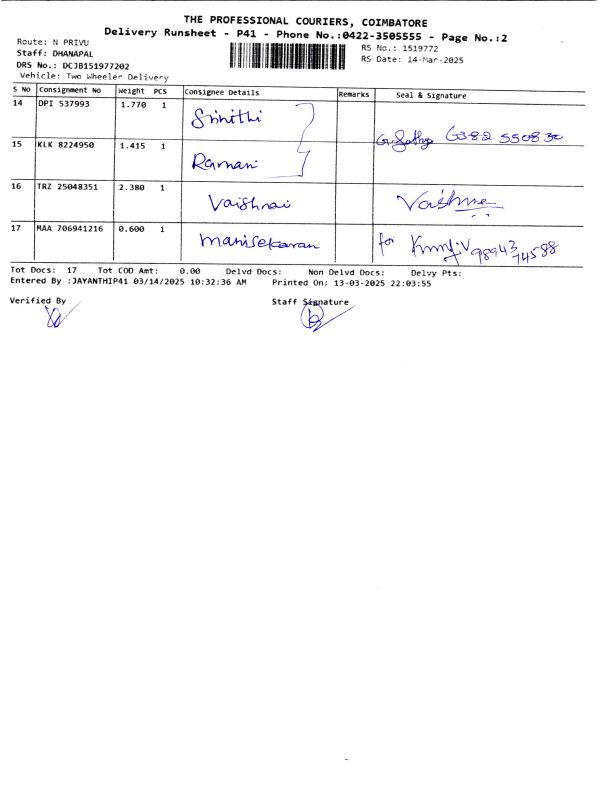 THE PROFESSIONAL COURIERS, COIMBATORE
Delivery Runsheet - P41 - Phone No.:0422-3505555 - Page No.:2
Route: N PRIVU
Staff: DHANAPAL
DRS No.: DCJB151977202
Vehicle: Two Wheeler Delivery
RS No.: 1519772
RS Date: 14-Mar-2025
S No Consignment No Weight PCS Consignee Details Remarks Seal & Signature
14 DPI 537993 1.770 1 Srinithi
15 KLK 8224950 1.415 1 Ramani 6382 550830
16 TRZ 25048351 2.380 1 Vaishnavi
17 MAA 706941216 0.600 1 Manisekaran for 98943 74588
Tot Docs: 17 Tot COD Amt: 0.00 Delvd Docs: Non Delvd Docs: Delvy Pts:
Entered By :JAYANTHIP41 03/14/2025 10:32:36 AM Printed On: 13-03-2025 22:03:55
Verified By Staff Signature